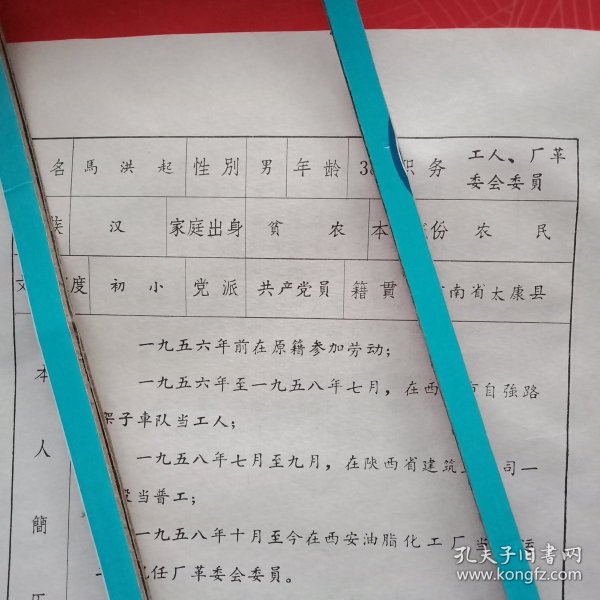 名 馬洪起 性別 男 年齡 3 职务 工人、厂革委会委員
族 汉 家庭出身 貧农 本 份 农民
文 度 初小 党派 共产党員 籍貫 南省太康县
本人簡历
一九五六年前在原籍参加劳动；
一九五六年至一九五八年七月，在西 市自強路
架子車队当工人；
一九五八年七月至九月，在陕西省建筑 司一
当普工；
一九五八年十月至今在西安油脂化工厂当 运
现任厂革委会委員。
孔夫子旧书网
www.kongfz.com